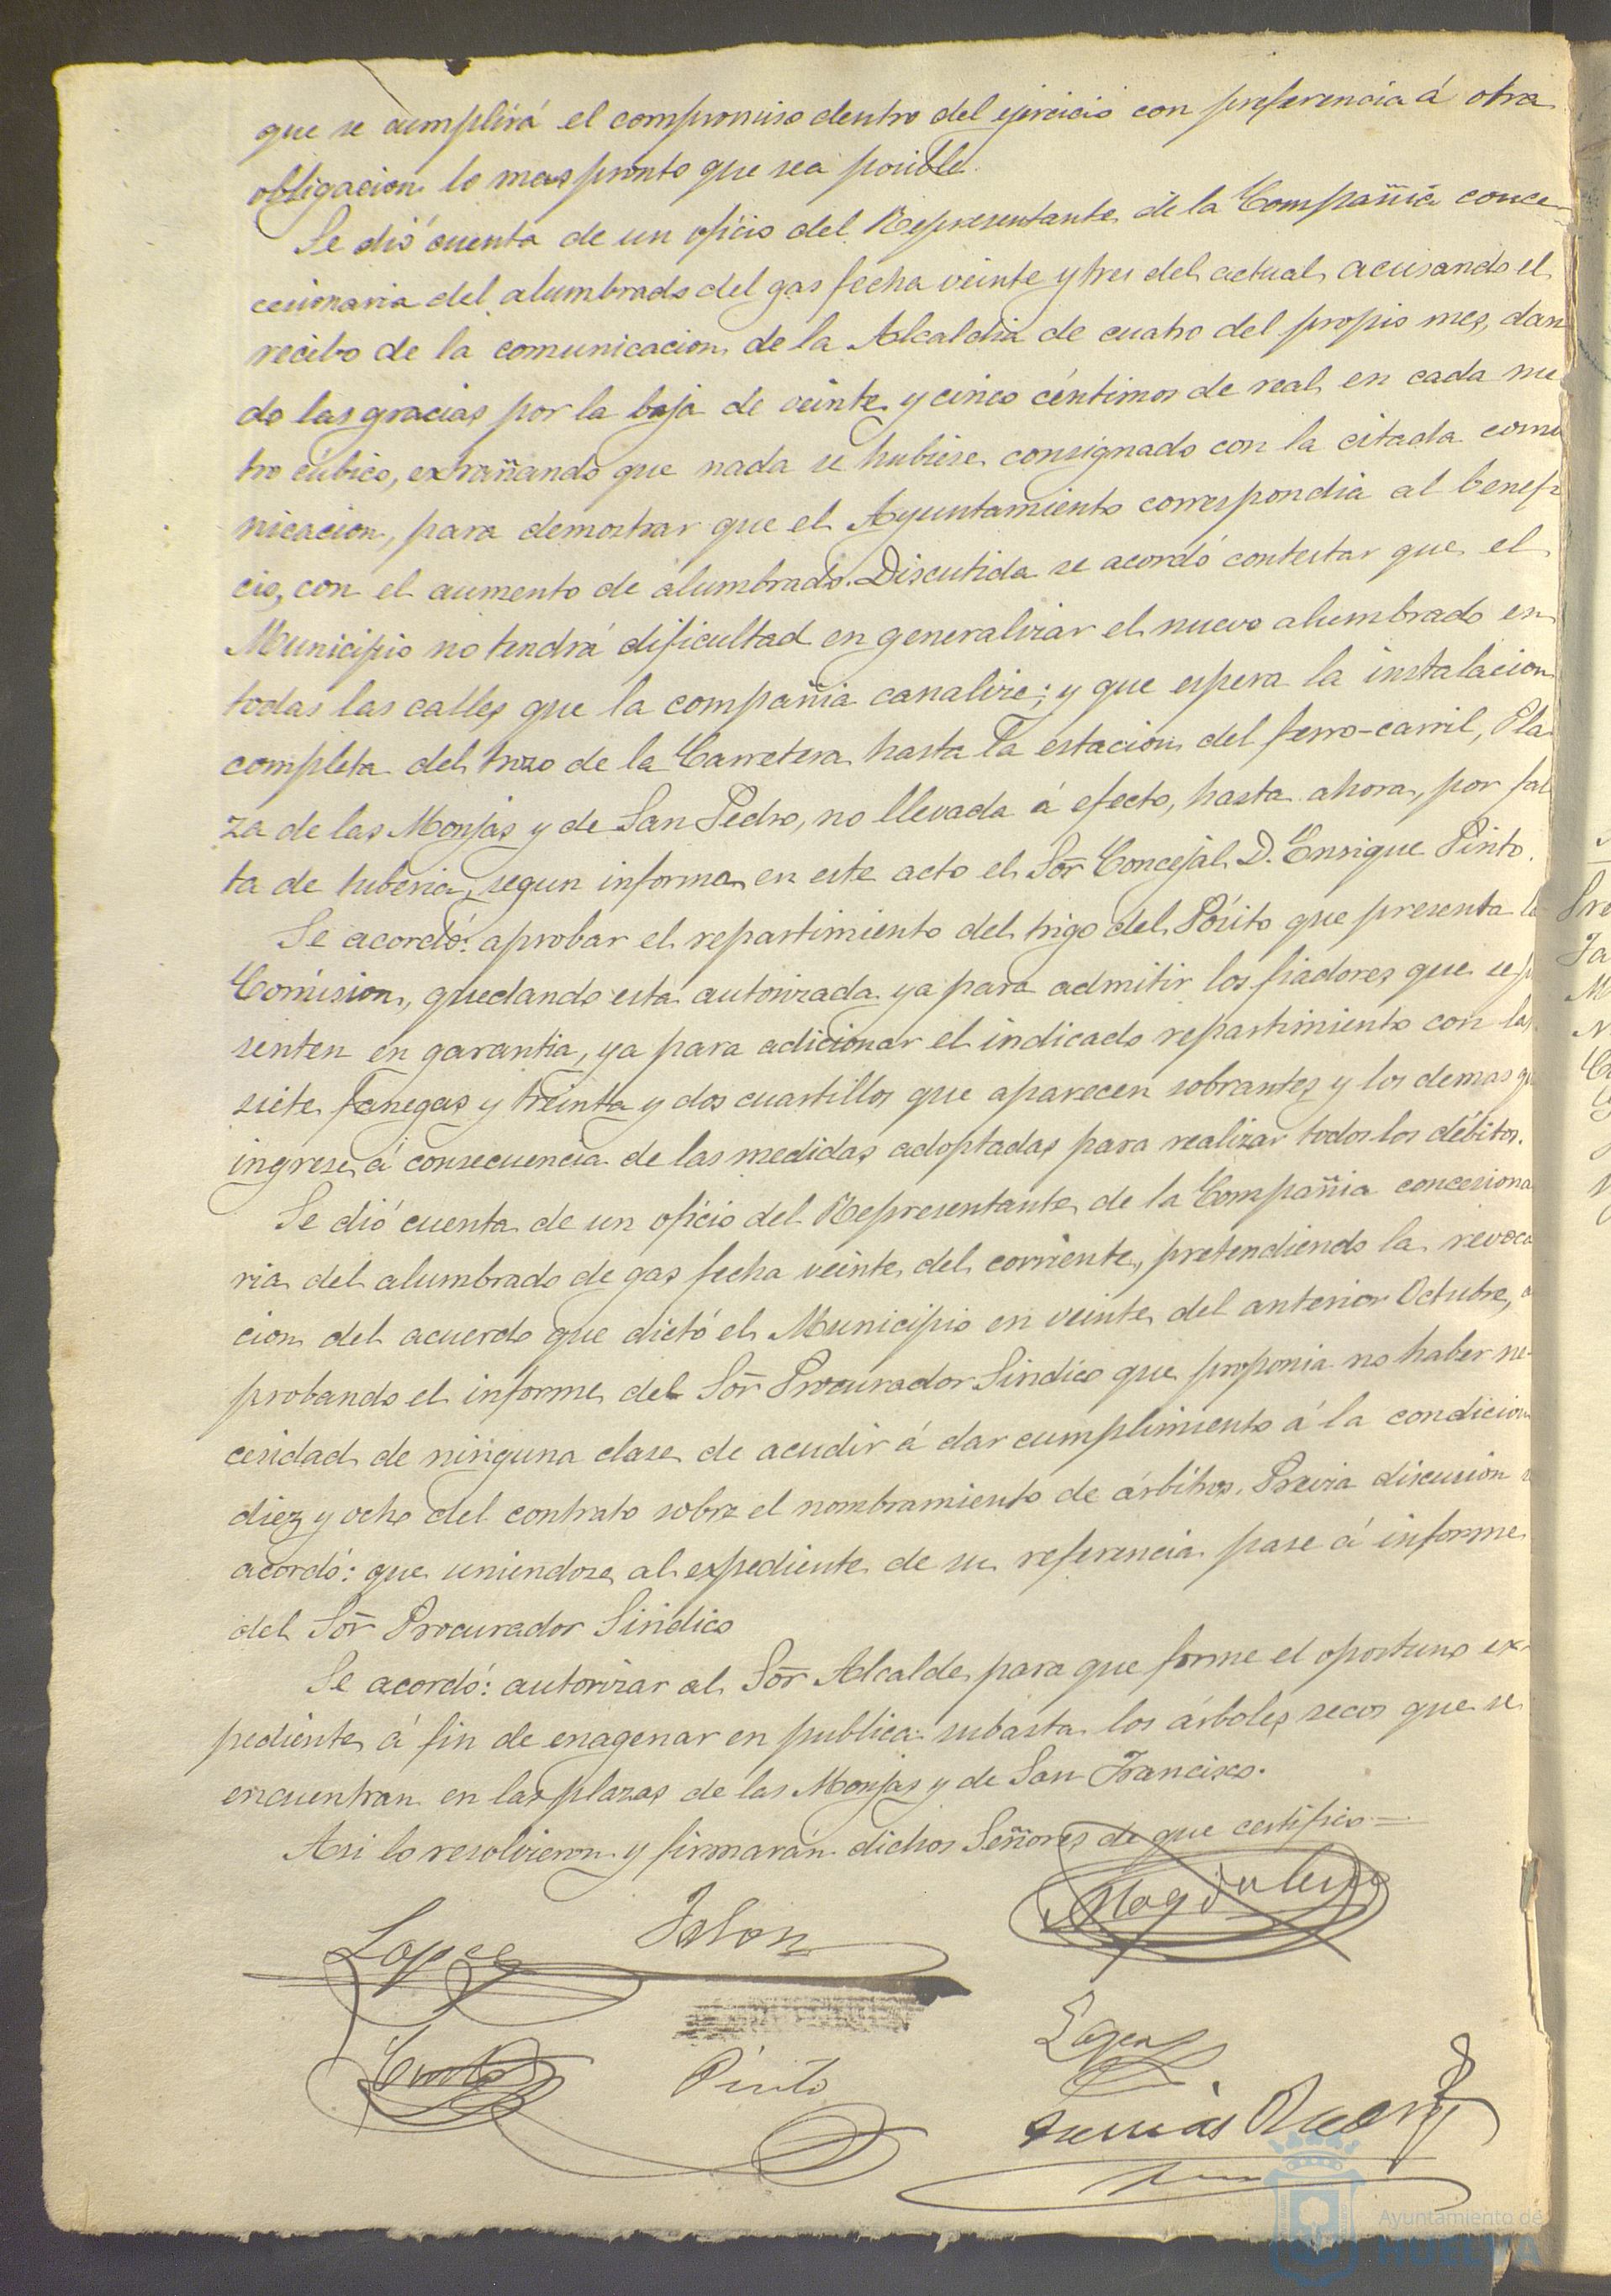 que se cumplirá el compromiso dentro del ejercicio con preferencia á otra
obligacion lo mas pronto que sea posible.
Se dió cuenta de un oficio del Representante de la Compañia conce-
cesionaria del alumbrado del gas fecha veinte y tres del actual, acusando el
recibo de la comunicacion de la Alcaldia de cuatro del propio mes, dan
do las gracias por la baja de veinte y cinco céntimos de real en cada me
tro cúbico, extrañando que nada se hubiese consignado con la citada comu
nicacion, para demostrar que el Ayuntamiento correspondia al benefi
cio, con el aumento de alumbrado. Discutida se acordó contestar que el
Municipio no tendrá dificultad en generalizar el nuevo alumbrado en
todas las calles que la compañia canalize; y que espera la instalacion
completa del trozo de la Carretera hasta la estacion del ferro-carril, Pla
za de las Monjas y de San Pedro, no llevada á efecto, hasta ahora, por fal
ta de tuberia, segun informa en este acto el Sor̃ Concejal D. Enrique Pinto.
Se acordó: aprobar el repartimiento del trigo del Pósito que presenta la
Comision, quedando esta autorizada ya para admitir los fiadores que se p
senten en garantia, ya para adicionar el indicado repartimiento con las
siete fanegas y treinta y dos cuartillos que aparecen sobrantes y los demas qu
ingrese á consecuencia de las medidas adoptadas para realizar todos los débitos.
Se dió cuenta de un oficio del Representante de la Compañia concesiona
ria del alumbrado de gas fecha veinte del corriente, pretendiendo la revoca
cion del acuerdo que dictó el Municipio en veinte del anterior Octubre, a
probando el informe del Sor̃ Procurador Sindico que proponia no haber ne-
cesidad de ninguna clase de acudir á dar cumplimiento á la condicion
diez y ocho del contrato sobre el nombramiento de árbitros. Previa discusion s
acordó: que uniendose al expediente de su referencia pase á informe
del Sor̃ Procurador Sindico
Se acordó: autorizar al Sor̃ Alcalde para que forme el oportuno ex-
pediente á fin de enagenar en publica subasta los árboles secos que se
encuentran en las plazas de las Monjas y de San Francisco.
Asi lo resolvieron y firmarán dichos Señores de que certifico=
Lopez
Pinto
Ayuntamiento de
HUELVA